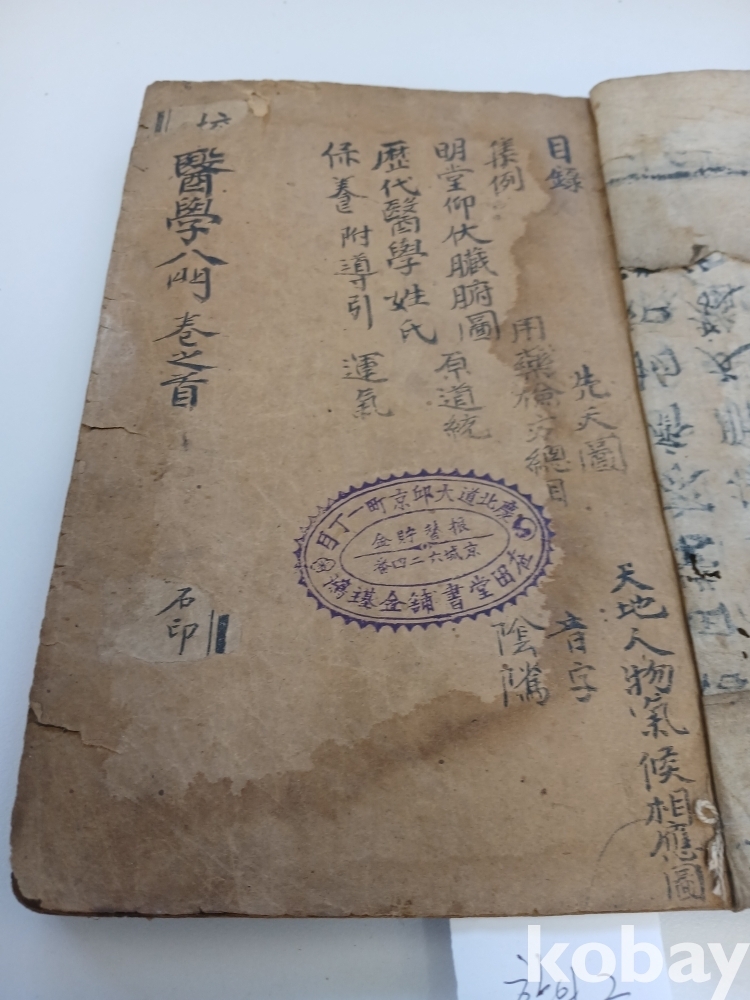 天地人物氣候相應圖
目錄 先天圖 音字
集例 用藥檢方總目 陰隲
明堂仰伏臟腑圖 原道統
歷代醫學姓氏
保養 附導引 運氣
醫學入門 卷之首
石印
慶北道大邱京町一丁目
振替貯金
京城六二四番
在田堂書鋪金璂鴻
kobay